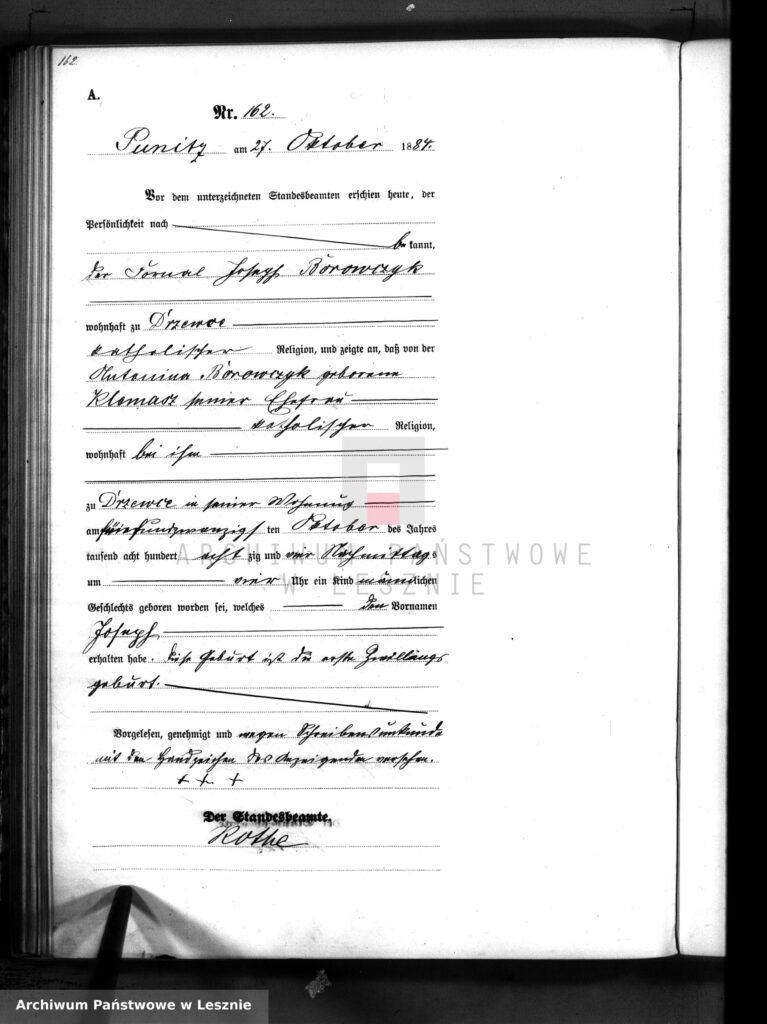 162.
A.
Nr. 162.
Punitz am 27. Oktober 1884.
Vor dem unterzeichneten Standesbeamten erschien heute, der
Persönlichkeit nach
be kannt,
der Fornal Joseph Borowczyk
wohnhaft zu Drzewce
katholischer Religion, und zeigte an, daß von der
Antonina Borowczyk geborene
Klomasz seiner Ehefrau
katholischer Religion,
wohnhaft bei ihm
zu Drzewce in seiner Wohnung
am fünfundzwanzigs ten Oktober des Jahres
tausend acht hundert acht zig und vier Nachmittags
um vier Uhr ein Kind männlichen
Geschlechts geboren worden sei, welches den Vornamen
Joseph
erhalten habe. Diese Geburt ist die erste Zwillings
geburt.
Vorgelesen, genehmigt und wegen Schreibensunkunde
mit den Handzeichen des Anzeigenden versehen.
+ + +
Der Standesbeamte.
Rothe
ARCHIWUM PAŃSTWOWE
W LESZNIE
Archiwum Państwowe w Lesznie